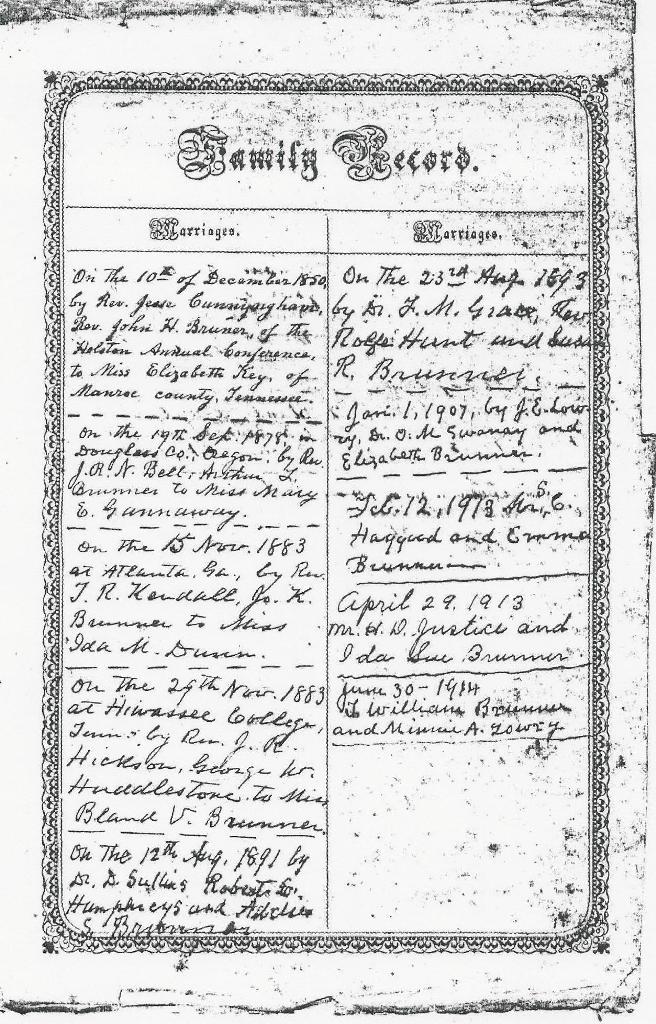 Family Record.
Marriages.
On the 10th of December 1850,
by Rev. Jesse Cunnyngham,
Rev. John H. Bruner, of the
Holston Annual Conference,
to Miss Elizabeth Key, of
Monroe county, Tennessee.
On the 19th Sep. 1878, in
Douglass Co., Oregon, by Rev
J. R. N. Bell, Arthur L.
Brunner to Miss Mary
E. Gannaway.
On the 15 Nov. 1883
at Atlanta, Ga., by Rev.
T. R. Kendall, Jo. K.
Brunner to Miss
Ida M. Dunn.
On the 29th Nov. 1883
at Hiwassee College,
Tenn. by Rev. J. R.
Hickson, George W.
Huddlestone to Miss
Bland V. Brunner.
On the 12th Aug. 1891 by
Dr. D. Sullins Robert W.
Humphreys and
S. Brunner
Marriages.
On the 23rd Aug 1893
by Dr. F. M. Grace, Rev
Rolfe Hunt and Susan
R. Brunner.
Jan. 1, 1907, by J. E. Low-
ry, Dr. O. M. Swanay and
Elizabeth Brunner.
Feb. 12, 1913 Mr. S. C.
Haggard and Emma
Brunner
April 29. 1913
Mr. H. D. Justice and
Ida Sue Brunner
June 30 - 1914
J William Brunner
and Minnie A. Lowry